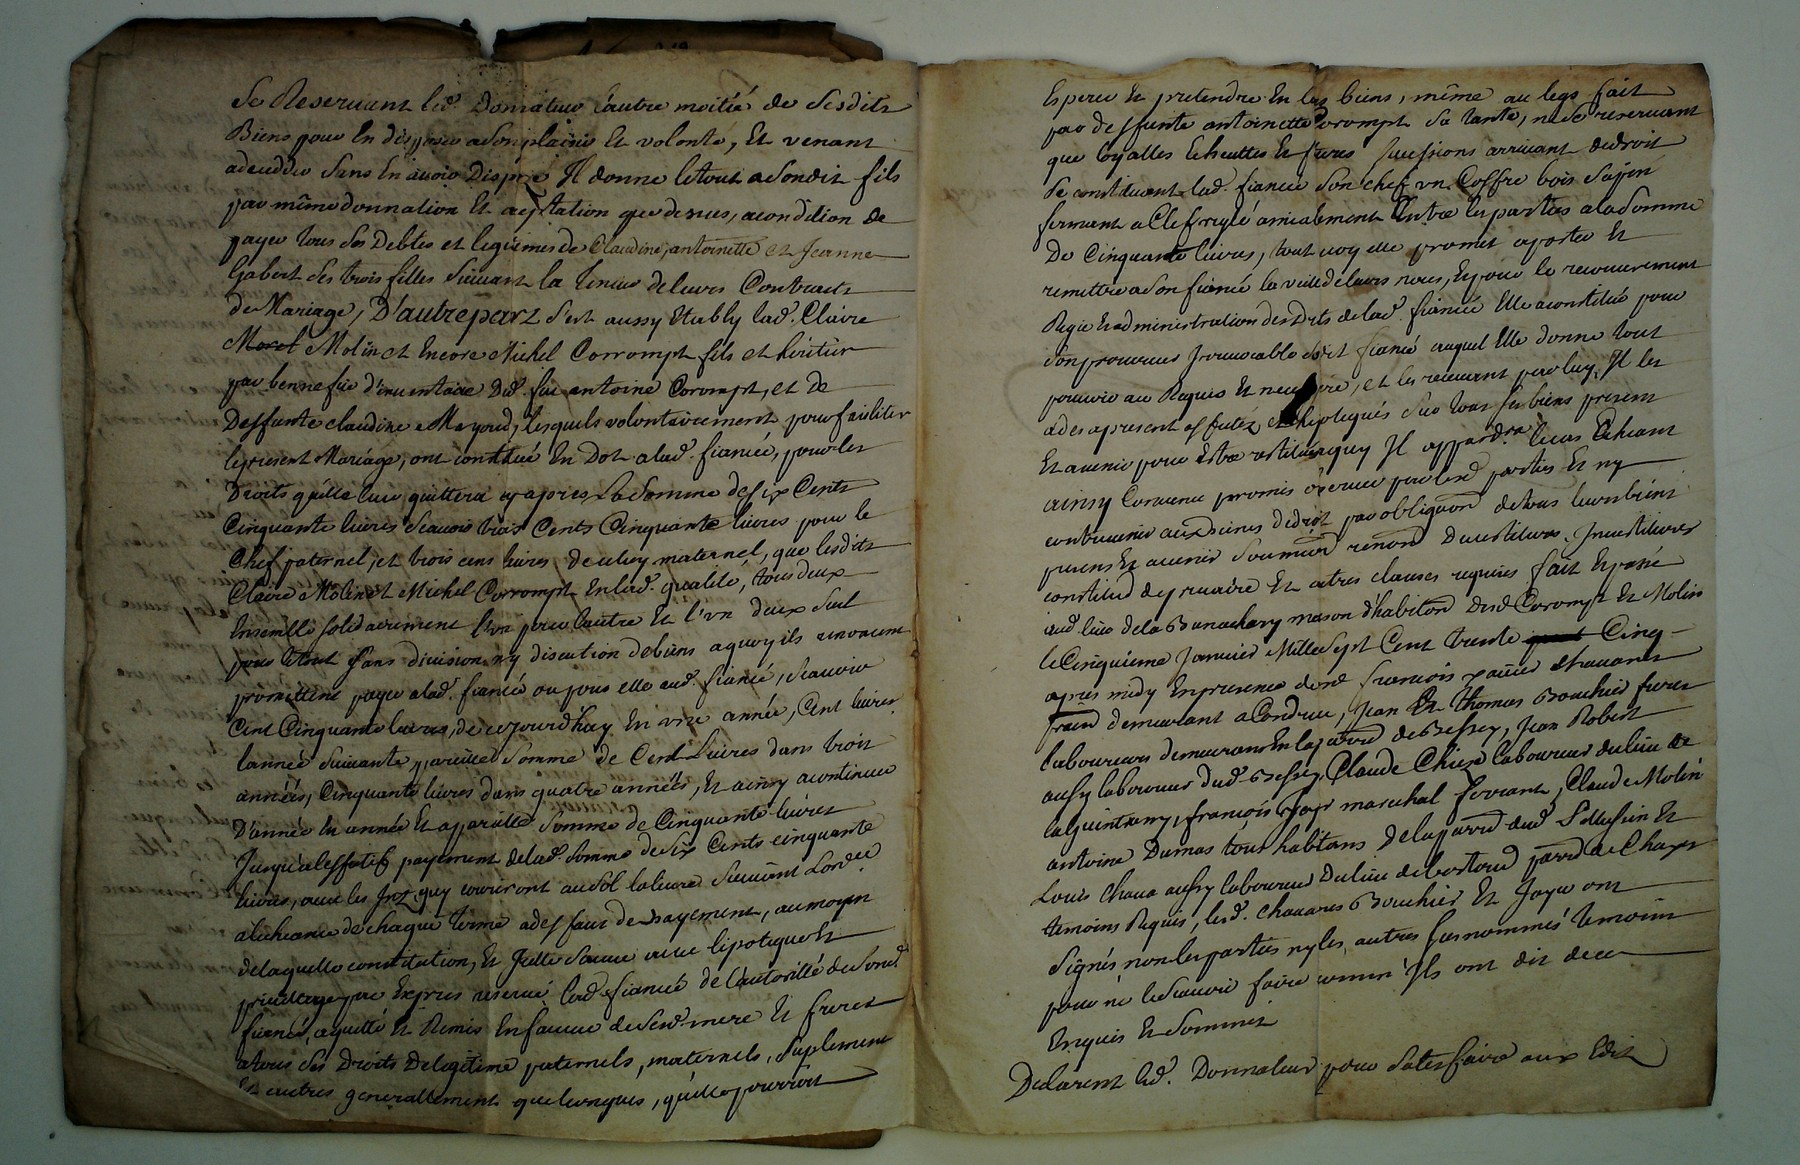 Se Reservant led. Donnateur l'autre moitié de Sesdits
Biens pour En disposer a son plaisir Et volonté, Et venant
a deceddér Sans En avoir Disposé Il donne le tout a Sondit fils
par même donnation Et aceptation que dessus, a condition de
payer tous Ses Debtes et legitimes de Claudine, antoinette et Jeanne
Gabert Ses trois filles Suivant la teneur de leurs Contracts
de Mariage, D'autre part S'est aussy Etably lad. Claire
Molin et Encore Michel Corrompt fils et héritier
par bennefice d'inventaire Dud. feu antoine Corompt, et de
Deffunte claudine Mayoud, lesquels volontairement pour faciliter
le present Mariage, ont constitué En Dot a lad. fiancée, pour les
Droits qu'elle leur quittera cy apres La Somme de Six Cents
Cinquante livres Scavoir trois Cents Cinquante livres pour le
Chef paternel, et trois cens livres de celuy maternel, que lesdits
Claire Molin et Michel Corrompt En lad. qualité, tous deux
Ensemble solidairement l'un pour l'autre Et l'vn d'eux Seul
pour le tout Sans division ny discution de biens a quoy ils renoncent
promettent payer a lad. fiancée ou pour elle aud. fiancé, Scavoir
Cent Cinquante livres, de cejourd'huy En vne année, Cent livres
l'année Suivante, pareille Somme de Cent Livres dans trois
années, Cinquante livres dans quatre années, Et ainsy a continuer
D'année En année Et a pareille Somme de Cinquante livres
Jusqu'a l'effectif payement de lad. Somme de Six Cents cinquante
livres, avec les Jnt. quy courriront au Sol la livre Suivant Lord.ce
a l'échéance de chaque terme a deffaut de payement, au moyen
de laquelle constitution, Et Jcelle Sauve avec l'ipoteque Et
privilege par Exprès reservé lad. fiancée de l'autorité de Sond.
fiancé, a quitté Et Remis En faveur de Sesd. mere Et freres
a tous Ses Droits De legitime paternels, maternels, Suplement
Et autres generallement quelconques, qu'elle pourroit
Esperer Et pretendre En les biens, même au legs fait
par deffunte antoinette Corompt Sa tante, ne Se reservant
que loyalles Echeuttes Et futures Successions arrivant de droit
Se constituant lad. fiancée Son chef vn Coffre bois Sapin
fermant a Clef reglé amicalement Entre les parties a la Somme
De Cinquante livres, tout quoy elle promet aporter Et
remettre a Son fiancé la veille de leurs noces, Et pour le recouvrement
Regie Et administration des Dts de lad. fiancée Elle a constitué pour
Son procureur Jrrevocable Sondit fiancé auquel Elle donne tout
pouvoir au Requis Et necessaire, et les recevant par luy, Il les
a des a present assurés et hipotequés Sur tous Ses biens present
Et avenir pour Estre restitués a quy Il appard.ra le cas Echeant
ainsy Convenu promis observer par lesd. parties Et ny
contrevenir aux peines de droit par obligaon de tous leurs biens
presens Et avenir Soumison renon Devestiture Jnvestitures
constitud de precaire Et autres clauses requises fait Et passé
aud. lieu de la Bonachary maison d'habitaon desd. Corompt Et Molin
le Cinquieme Janvier Mille Sept Cent trente Cinq
apres midy En presence de sr françois xavier chavanes
demeurant a Condrieu, Jean Et thomas Bouchier freres
laboureurs demeurans En la parr. de Bessey, Jean Robert
aussy laboureur dud. Bessey, Claude Chiez laboureur du lieu de
françois Joye marechal ferrant, Claude Molin
antoine Dumas tous habitans de la parr. dud. Pellussin Et
Louis Chava aussy laboureur du lieu de parr. de Chayes
temoins Requis, lesd. Chavanes Bouchier Et Joye ont
Signés non les parties ny les autres Susnommés temoins
pour ne le Scavoir faire comme Ils ont dit de ce
Enquis Et Sommés
Declarent led. Donnateur pour Satisfaire aux Edits